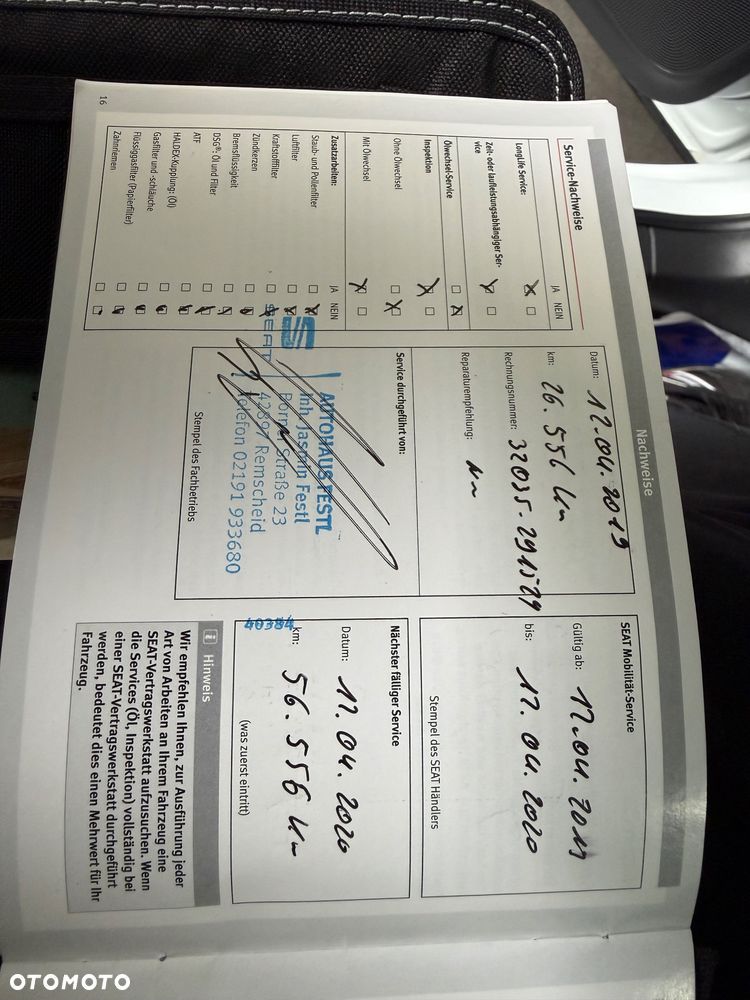 Nachweise
Service-Nachweise
JA NEIN
LongLife Service:
Zeit- oder laufleistungsabhängiger Ser-
vice
Ölwechsel-Service
Inspektion
Ohne Ölwechsel
Mit Ölwechsel
Zusatzarbeiten: JA NEIN
Staub- und Pollenfilter
Luftfilter
Kraftstofffilter
Zündkerzen
Bremsflüssigkeit
DSG®: Öl und Filter
ATF
HALDEX-Kupplung: (Öl)
Gasfilter und -schläuche
Flüssiggasfilter (Papierfilter)
Zahnriemen
16
Datum: 17.04.2019
km: 26.556 km
Rechnungsnummer: 32035-291529
Reparaturempfehlung:
Service durchgeführt von:
SEAT
AUTOHAUS FESTL
Inh. Jasmin Festl
Borner Straße 23
42897 Remscheid
Telefon 02191 933680
Stempel des Fachbetriebs
SEAT Mobilität-Service
Gültig ab: 17.04.2019
bis: 17.04.2020
Stempel des SEAT Händlers
Nächster fälliger Service
Datum: 17.04.2020
km: 56.556 km
(was zuerst eintritt)
40384
i Hinweis
Wir empfehlen Ihnen, zur Ausführung jeder
Art von Arbeiten an Ihrem Fahrzeug eine
SEAT-Vertragswerkstatt aufzusuchen. Wenn
die Services (Öl, Inspektion) vollständig bei
einer SEAT-Vertragswerkstatt durchgeführt
werden, bedeutet dies einen Mehrwert für Ihr
Fahrzeug.
OTOMOTO